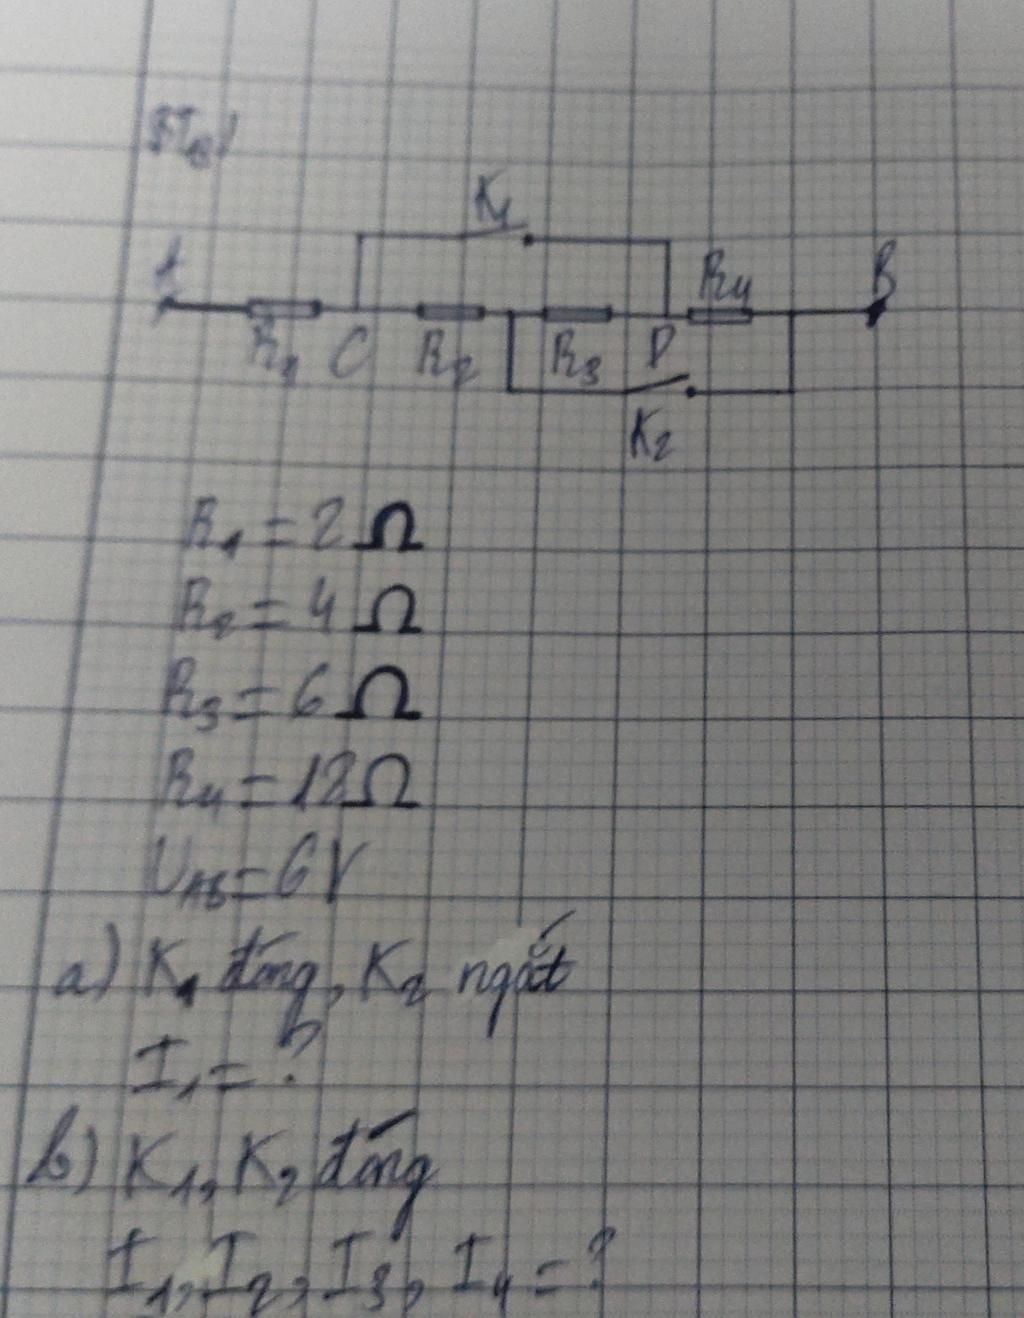 K1
A R1 C R2 R3 D R4 B
K2
R1 = 2 Ω
R2 = 4 Ω
R3 = 6 Ω
R4 = 12 Ω
UAB = 6V
a) K1 đóng, K2 ngắt
I1 = ?
b) K1, K2 đóng
I1, I2, I3, I4 = ?